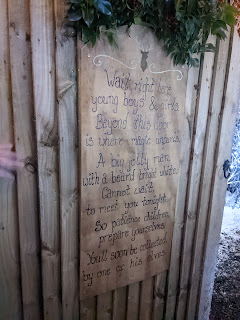 Wait right here
young boys & girls
Beyond this door
is where magic unfurls
A big jolly man
with a beard bright white
Cannot wait
to meet you tonight
So patience children
prepare yourselves
You'll soon be collected
by one of his elves